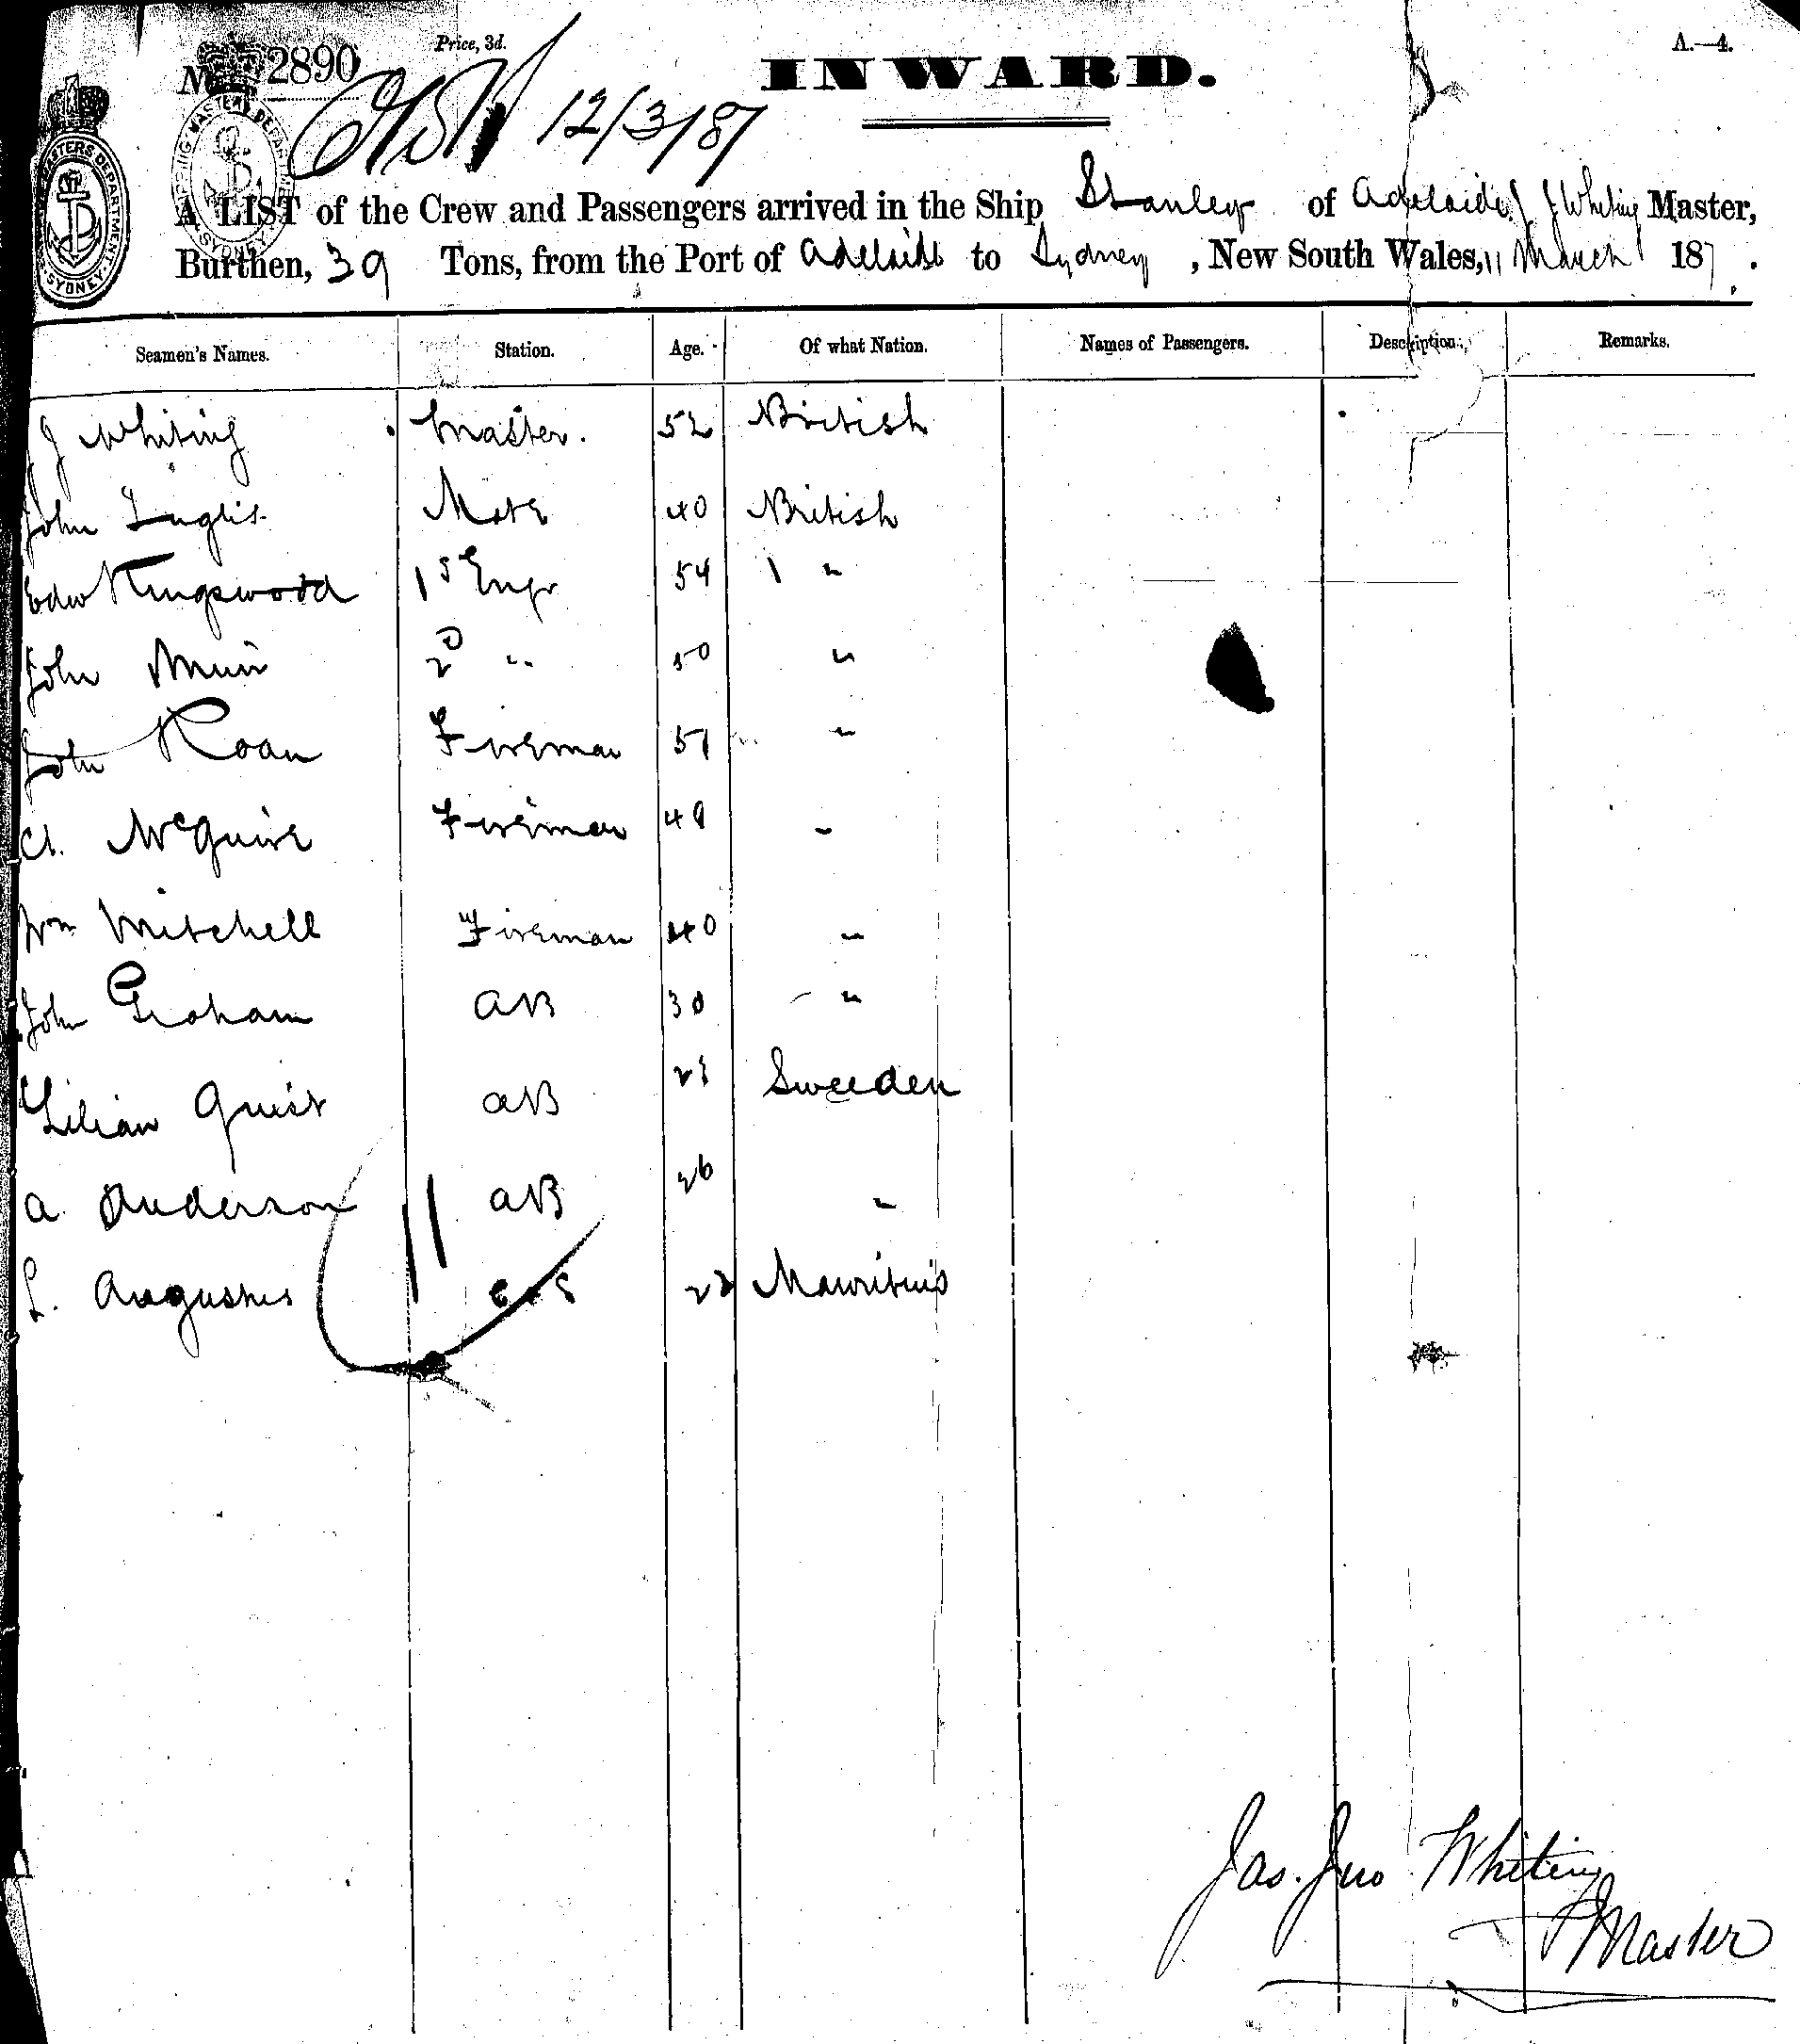 Price, 3d.
A.—4.
No 2890
INWARD.
12/3/87
A LIST of the Crew and Passengers arrived in the Ship Stanley of Adelaide, J J Whiting Master,
Burthen, 39 Tons, from the Port of Adelaide to Sydney, New South Wales, 11 March 187.
Seamen's Names. Station. Age. Of what Nation. Names of Passengers. Description. Remarks.
J J Whiting Master. 52 British
John Inglis Mate 40 British
Edw Kingswood 1st Engr 54 "
John Muir 2D " 50 "
John Roan Fireman 51 "
A. McGuire Fireman 49 "
Wm Mitchell Fireman 40 "
John Graham AB 30 "
Lilian Quist AB 23 Sweeden
A. Anderson AB 26 "
L. Augustus 11 Mauritius
Jas. Jno Whiting
Master